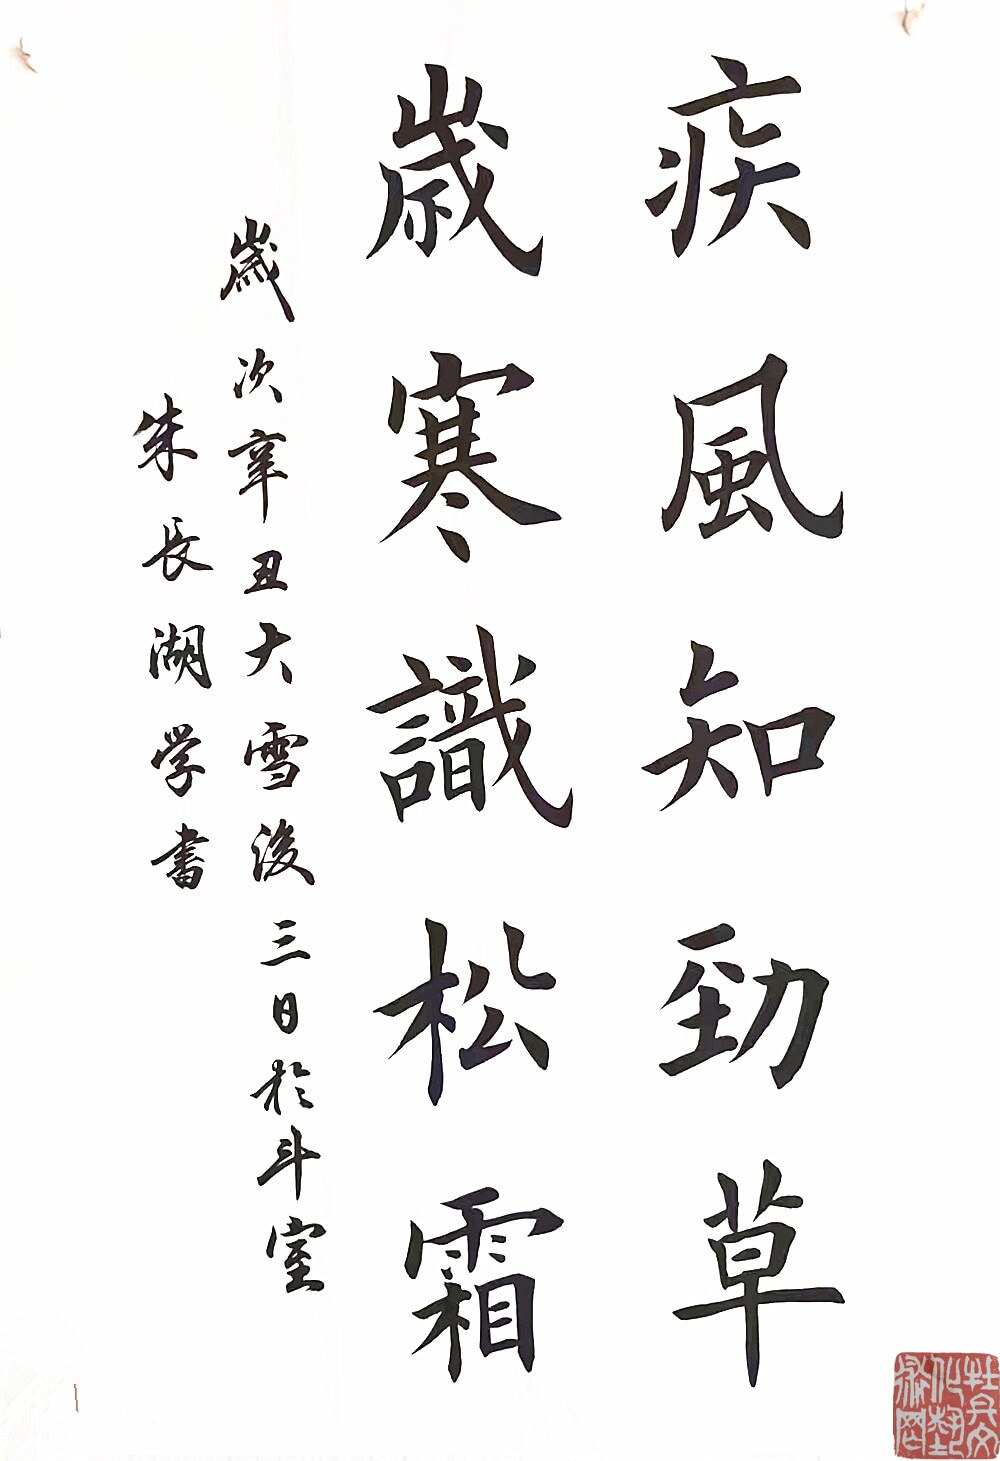 疾風知勁草
歲寒識松霜
歲次辛丑大雪後三日於斗室
朱長湖学書